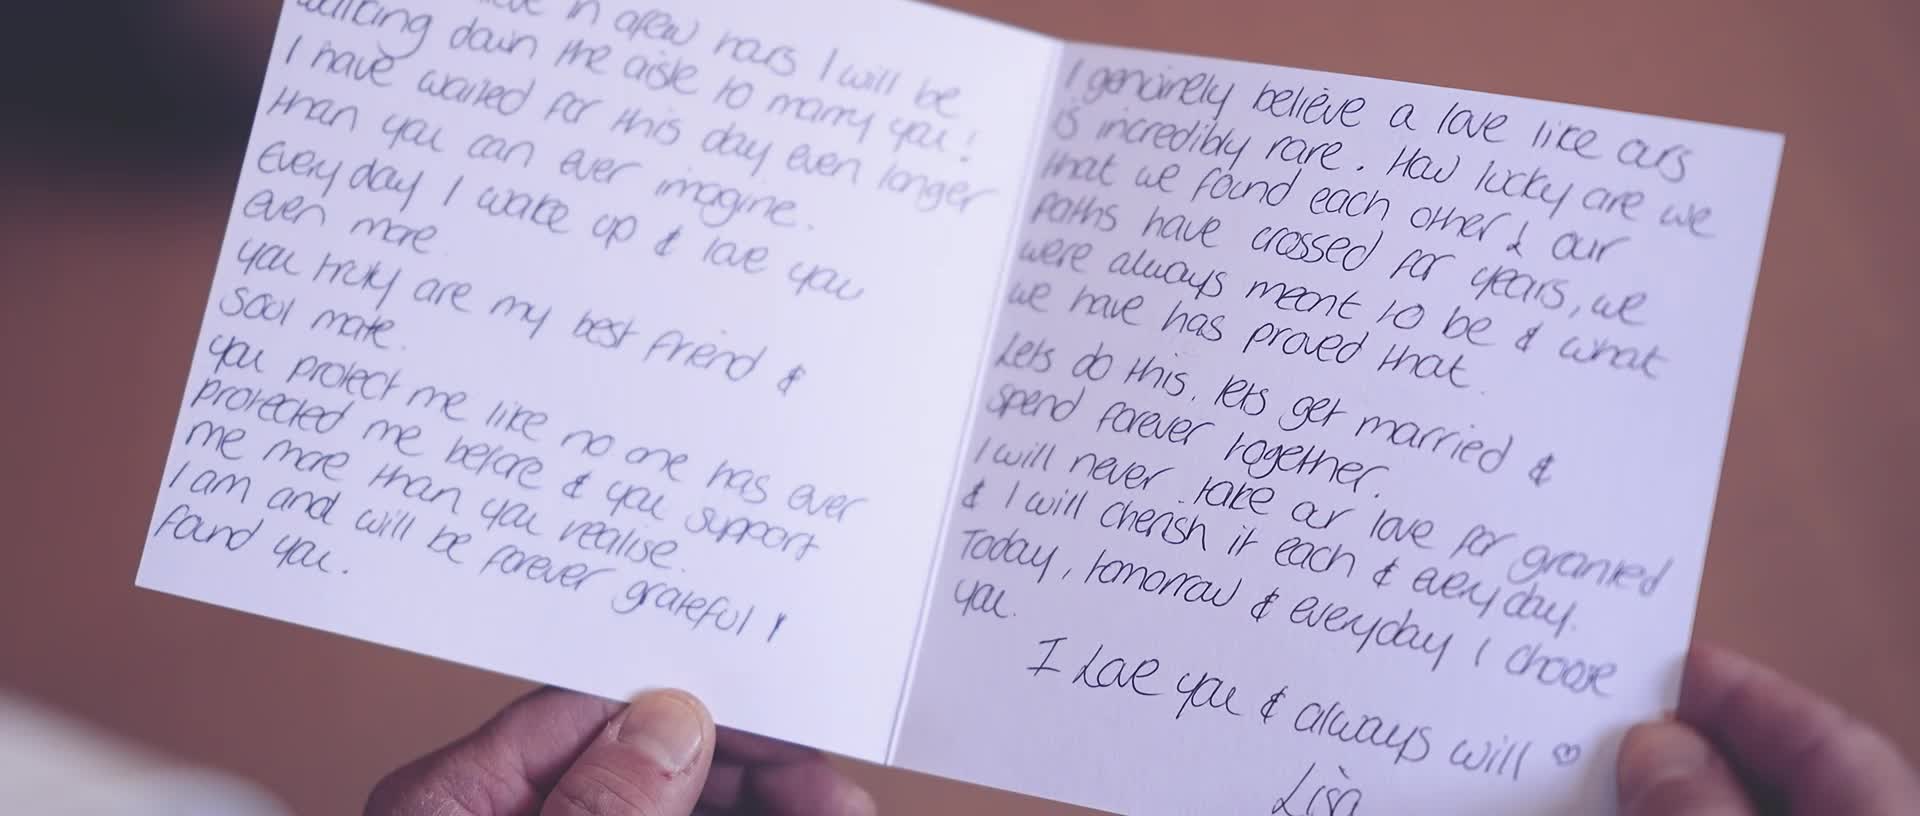 in afew hours I will be
walking down the aisle to marry you!
I have waited for this day even longer
than you can ever imagine.
Every day I wake up & love you
even more.
you truly are my best friend &
Soul mate.
you protect me like no one has ever
protected me before & you support
me more than you realise.
I am and will be forever grateful I
found you.
I genuinely believe a love like ours
is incredibly rare. How lucky are we
that we found each other & our
paths have crossed for years, we
were always meant to be & what
we have has proved that.
Lets do this, lets get married &
spend forever together.
I will never take our love for granted
& I will cherish it each & every day.
Today, tomorrow & everyday I choose
you.
I Love you & always will ♡
Lisa